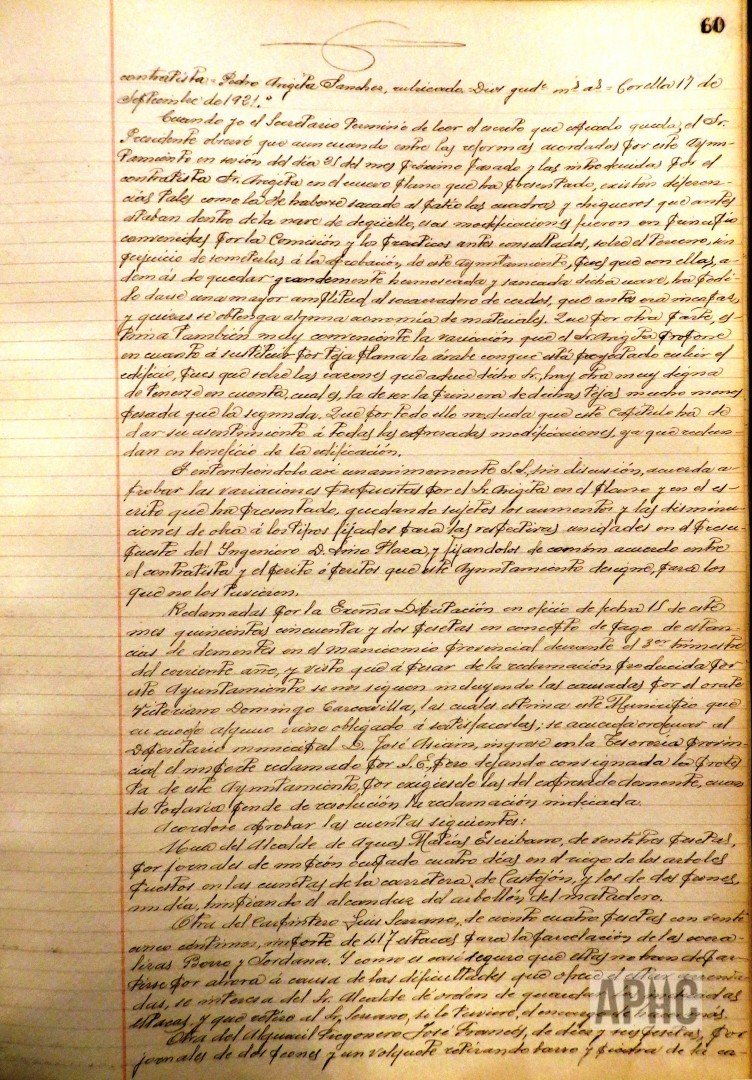 60
contratista = Pedro Argita Sanchez, rubricado. Dios gude. ms. as. = Corella 17 de
Septiembre de 1921."
Cuando yo el Secretario terminé de leer el escrito que copiado queda, el Sr.
Presidente observó que aun cuando entre las reformas acordadas por este Ayun-
tamiento en sesión del día 31 del mes próximo pasado y las introducidas por el
contratista Sr. Argita en el nuevo plano que ha presentado, existen diferen-
cias tales como la de haberse sacado al patio las cuadras y chiqueros que antes
estaban dentro de la nave de degüello, esas modificaciones fueron en principio
convenidas por la Comisión y los prácticos antes consultados, sobre el terreno, sin
perjuicio de someterlas á la aprobación de este Ayuntamiento, pues que con ellas, a-
demás de quedar grandemente hermoseada y saneada dicha nave, ha podi-
do darse una mayor amplitud al socarradero de cerdos, que antes era incapaz,
y quizas se obtenga alguna economía de materiales. Que por otra parte, es-
tima también muy conveniente la variación que el Sr. Argita propone
en cuanto á sustituir por teja plana la árabe conque está proyectado cubrir el
edificio, pues que sobre las razones que aduce dicho Sr., hay otra muy digna
de tenerse en cuenta, cual es, la de ser la primera de dichas tejas mucho menos
pesada que la segunda. Que por todo ello no duda que este Cabildo ha de
dar su asentimiento á todas las expresadas modificaciones, ya que redun-
dan en beneficio de la edificación.
Y entendiéndolo así unanimemente S.S. sin discusión, acuerda a-
probar las variaciones propuestas por el Sr. Argita en el plano y en el es-
crito que ha presentado, quedando sujetos los aumentos y las disminu-
ciones de obra á los tipos fijados para las respectivas unidades en el presu-
puesto del Ingeniero D. Lino Plaza y fijandolos de común acuerdo entre
el contratista y el perito ó peritos que este Ayuntamiento designe, para los
que no los tuvieren.
Reclamadas por la Excma Diputación en oficio de fecha 15 de este
mes quinientas cincuenta y dos pesetas en concepto de pago de estan-
cias de dementes en el manicomio provincial durante el 3er trimestre
del corriente año, y visto que á pesar de la reclamación producida por
este Ayuntamiento se nos siguen incluyendo las causadas por el orate
Victoriano Domingo Carcavilla, las cuales estima este Municipio que
en modo alguno viene obligado á satisfacerlas; se acuerda ordenar al
Depositario municipal D. José Asiain, ingrese en la Tesorería provin-
cial el importe reclamado por S.E., pero dejando consignada la protes-
ta de este Ayuntamiento, por exigirsele las del expresado demente, cuan-
do todavía pende de resolución la reclamación indicada.
Acordose aprobar las cuentas siguientes:
Una del Alcalde de Aguas Matías Escribano, de ventitres pesetas,
por jornales de un peón ocupado cuatro días en el riego de los arboles
puestos en las cunetas de la carretera de Castejón, y los de dos peones,
un día, limpiando el alcanduz del arbollón del matadero.
Otra del Carpintero Luis Serrano, de ciento cuatro pesetas con venti-
cinco centimos, importe de 417 estacas para la parcelación de las corra-
lizas Borro y Jordana. Y como es casi seguro que estas no han de par-
tirse por ahora á causa de las dificultades que ofrece el estar arrenda-
das, se interesa del Sr. Alcalde dé orden de guardar
estacas, y que retire al Sr. Serrano, si lo tuviere, el encargo de hacer más.
Otra del Alguacil Pregonero José Francés, de diez y seis pesetas, por
jornales de dos peones y un volquete retirando barro y piedra de la ca-
APHC